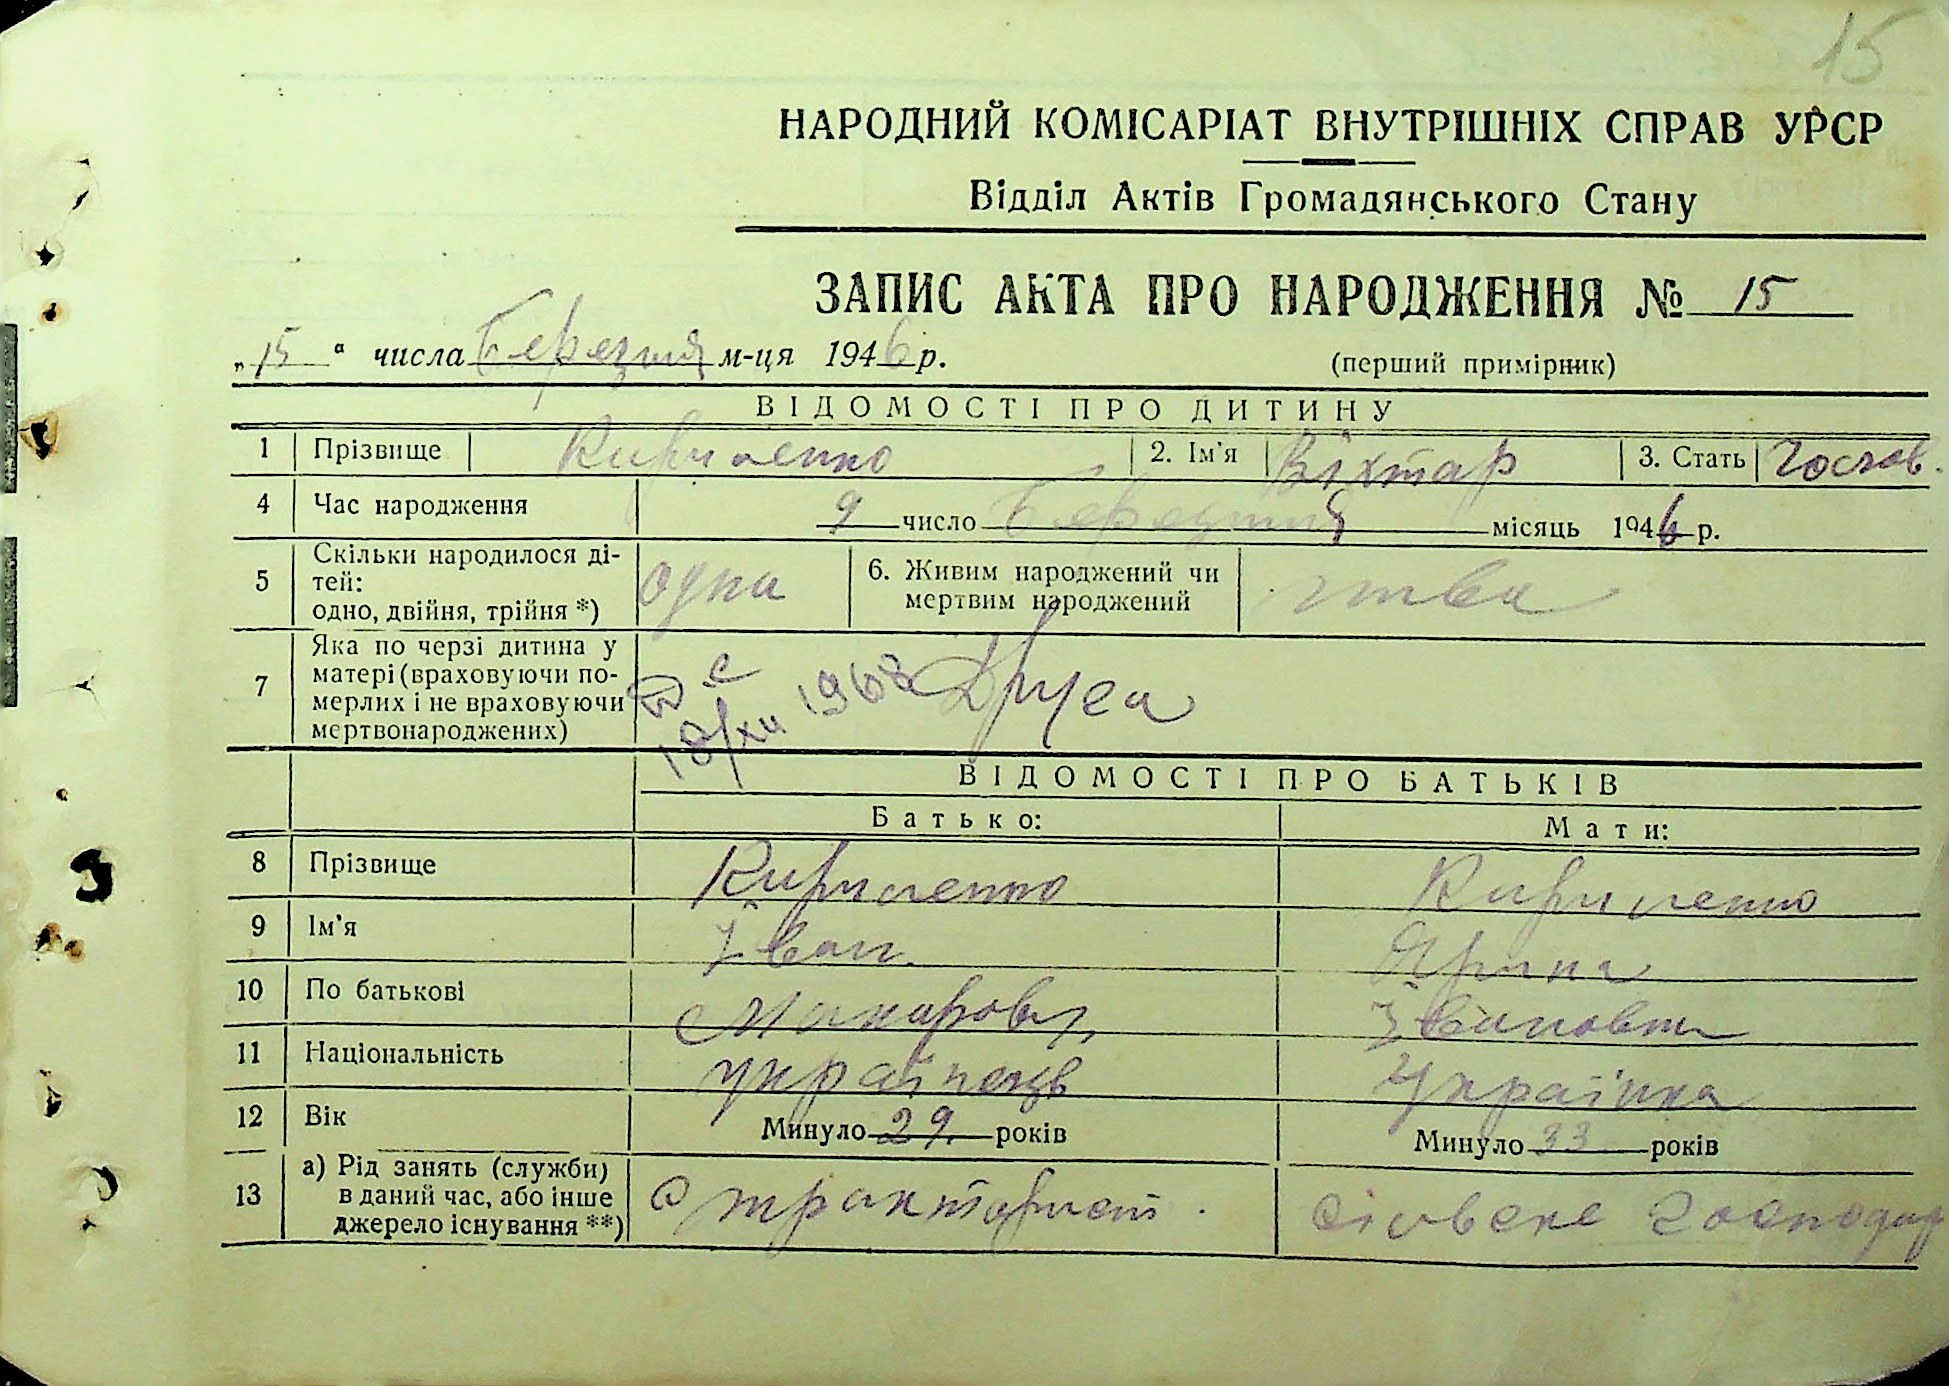 15
НАРОДНИЙ КОМІСАРІАТ ВНУТРІШНІХ СПРАВ УРСР
Відділ Актів Громадянського Стану
ЗАПИС АКТА ПРО НАРОДЖЕННЯ № 15
„15“ числа Березня м-ця 1946 р. (перший примірник)
ВІДОМОСТІ ПРО ДИТИНУ
1 Прізвище Кириленко 2. Ім'я Віхтар 3. Стать
4 Час народження 9 число Березня місяць 1946 р.
5 Скільки народилося ді-
тей:
одно, двійня, трійня *) одна 6. Живим народжений чи
мертвим народжений
7 Яка по черзі дитина у
матері (враховуючи по-
мерлих і не враховуючи
мертвонароджених) Друга
18/XII 1968
ВІДОМОСТІ ПРО БАТЬКІВ
Батько: Мати:
8 Прізвище Кириленко Кириленко
9 Ім'я Іван Ярина
10 По батькові Макарович Івановна
11 Національність українець Українка
12 Вік Минуло 29. років Минуло 33 років
13 а) Рід занять (служби)
в даний час, або інше
джерело існування **) тракторист. сільске господар